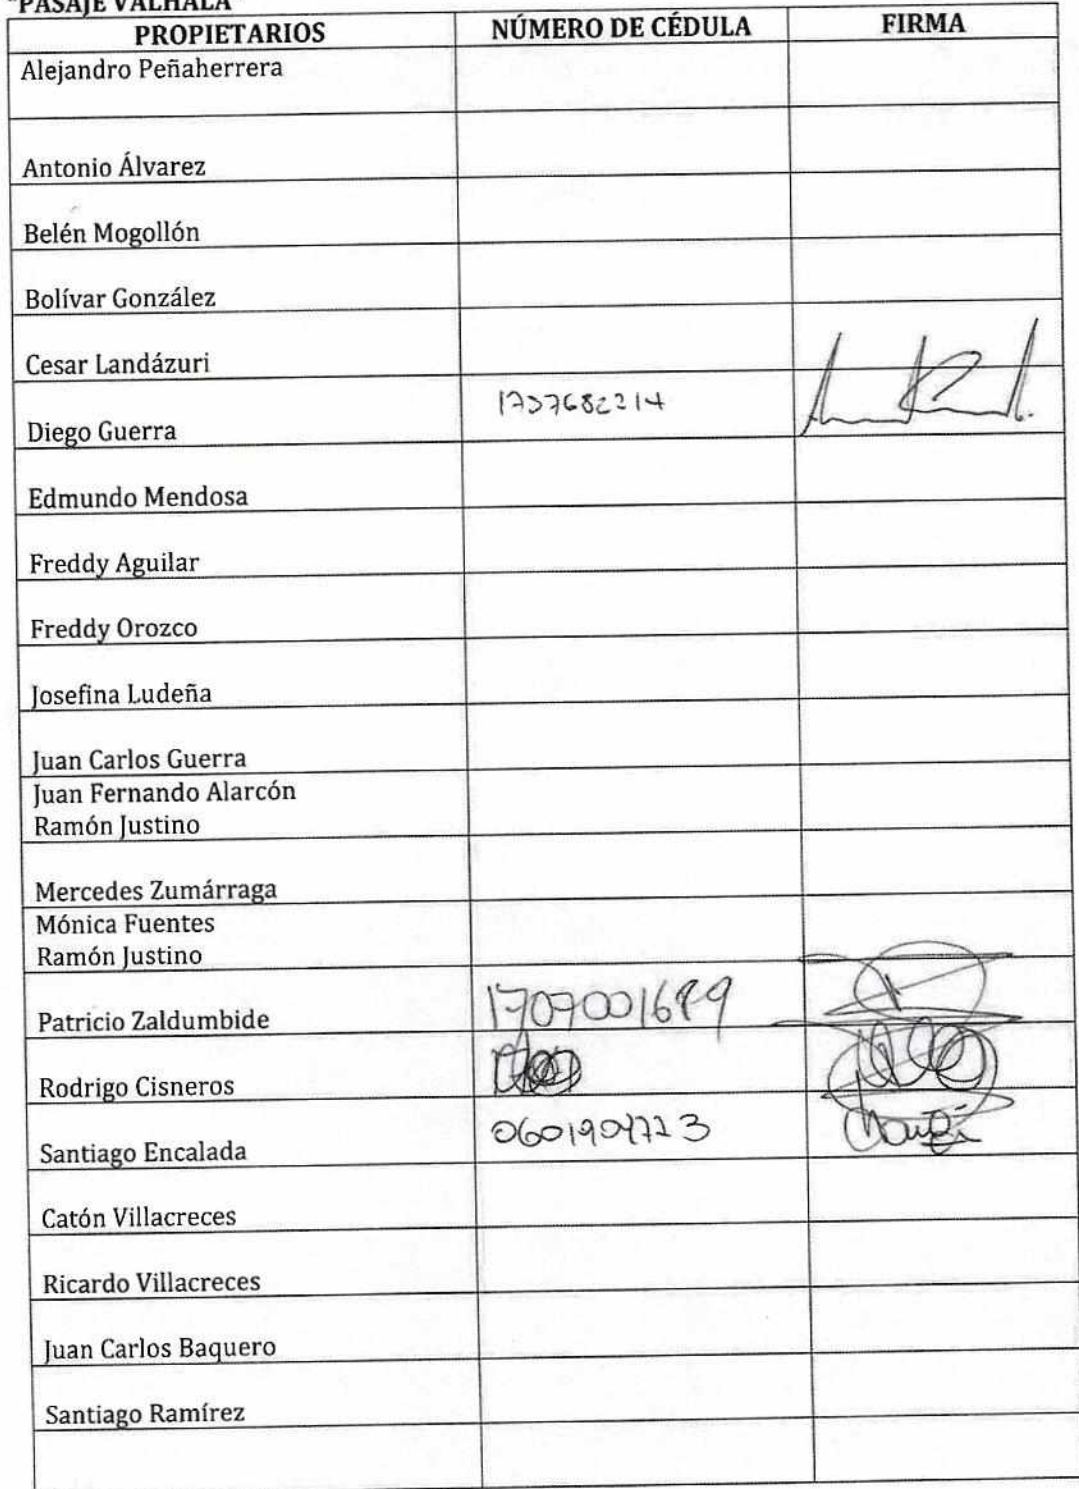 "PASAJE VALHALA"
PROPIETARIOS NÚMERO DE CÉDULA FIRMA
Alejandro Peñaherrera
Antonio Álvarez
Belén Mogollón
Bolívar González
Cesar Landázuri
Diego Guerra
Edmundo Mendosa
Freddy Aguilar
Freddy Orozco
Josefina Ludeña
Juan Carlos Guerra
Juan Fernando Alarcón
Ramón Justino
Mercedes Zumárraga
Mónica Fuentes
Ramón Justino
Patricio Zaldumbide
Rodrigo Cisneros
Santiago Encalada
Catón Villacreces
Ricardo Villacreces
Juan Carlos Baquero
Santiago Ramírez